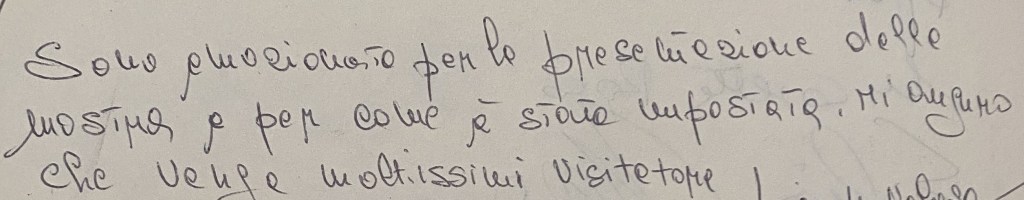 Sono emozionato per la presentazione della
mostra e per come è stata impostata. Mi auguro
che venga moltissimi visitatore !